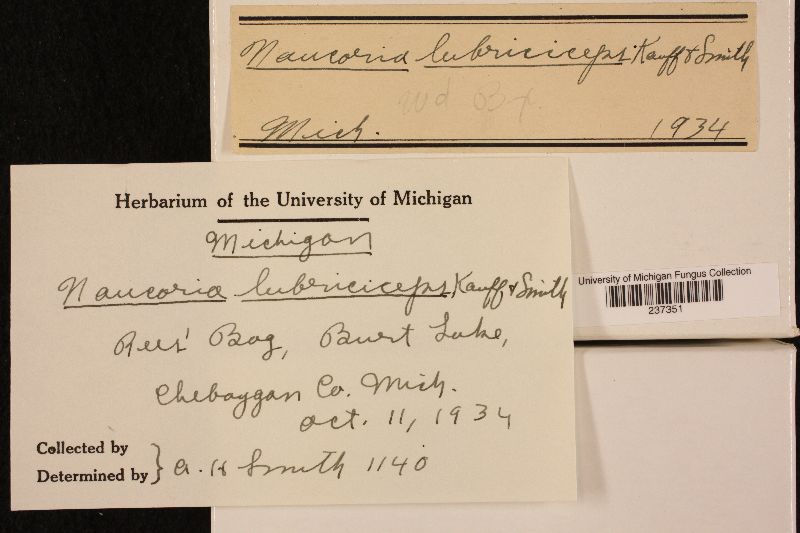 Naucoria lubriciceps Kauff & Smith
Mich. 1934
Herbarium of the University of Michigan
Michigan
Naucoria lubriciceps Kauff & Smith
Rees' Bog, Burt Lake,
Cheboygan Co. Mich.
Oct. 11, 1934
Collected by
Determined by } A. H Smith 1140
University of Michigan Fungus Collection
237351